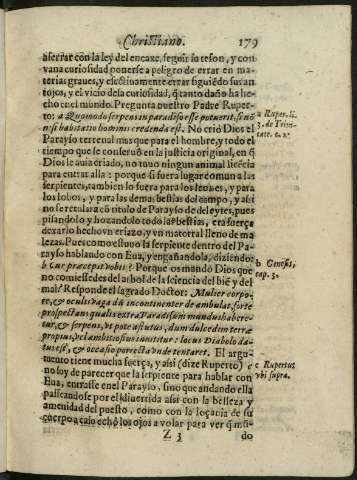 Christiano. 179
aferrar con la ley del encaxe, seguir su teson, y con
vana curiosidad ponerse a peligro de errar en ma-
terias graues, y efectiuamente errar siguiẽdo sus an-
tojos, y el vicio desa curiosidad, q̃ tanto daño ha he-
cho en el mundo. Pregunta nuestro Padre Ruper-
to: a Quomodo serpens in paradiso esse potuerit, si nõ
nisi habitatio hominis credenda est. No criò Dios el
Parayso terrenal mas que para el hombre, y todo el
tiempo que se conseruò en la justicia original, en q̃
Dios le auia criado, no tuuo ningun animal licẽcia
para entrar alla: porque si fuera lugar comun a las
serpientes, tambien lo fuera para los leones, y para
los lobos, y para las demas bestias del campo, y assi
no se rotulara cõ titulo de Parayso de deleytes, pues
pisandolo y hozandolo todo las bestias, era fuerça
dexarlo hecho vn eriazo, y vn matorral lleno de ma
lezas. Pues como estuuo la serpiente dentro del Pa-
rayso hablando con Eua, y engañandola, diziendo:
b Cur præcepit vobis? Porque os mandò Dios que
no comiessedes del arbol de la sciencia del biẽ y del
mal? Responde el sagrado Doctor: Mulier corpo-
re, & oculis vaga dũ incontinenter deambulat, forte
prospectans qualis extra Paradisum mundus habere-
tur, & serpens, vt pote astutus, dum dulcedini terræ
propius, vel ambitiosius innititur: locus Diabolo da-
tus est, & occasio porrecta vnde tentaret. El argu-
mento tiene mucha fuerça, y assi (dize Ruperto) c
no soy de parecer que la serpiente para hablar con
Eua, entrasse en el Parayso, sino que andando ella
passeandose por el diuertida assi con la belleza y
amenidad del puesto, como con la loçania de su
cuerpo acaso echò los ojos a volar para ver q̃ mũ-
Z 3 do
a Ruper. li.
3. de Trini-
tate. c. 2.
b Genesis,
cap. 3.
c Rupertus
vbi supra.